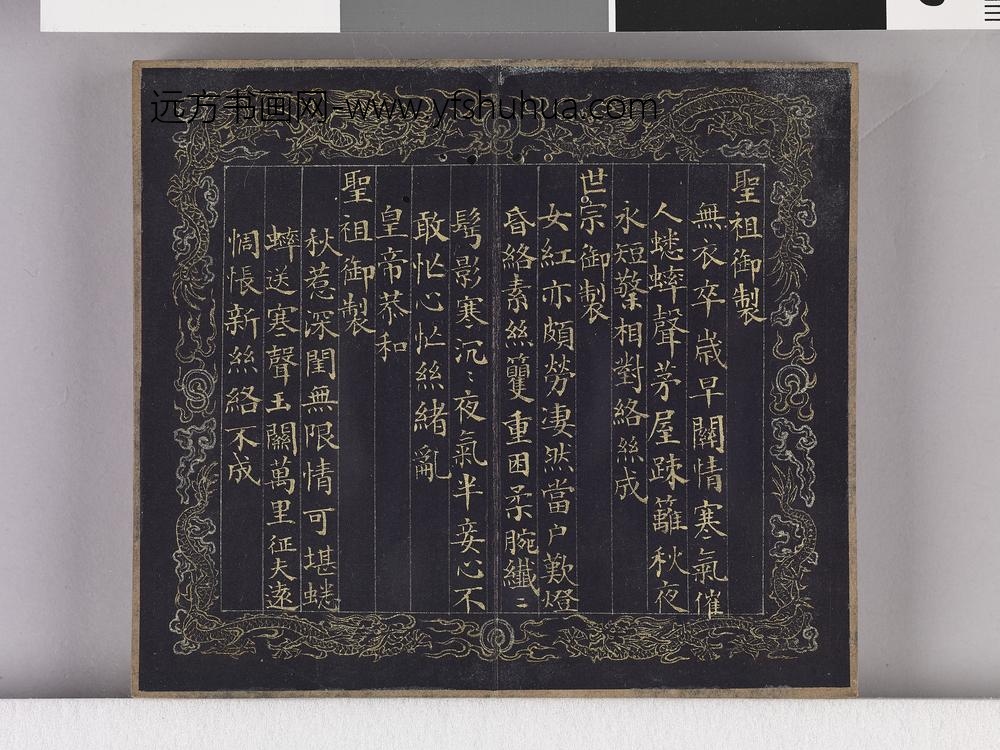 远方书画网-www.yfshuhua.com
聖祖御製
無衣卒歲早關情寒氣催
人蟋蟀聲茅屋踈籬秋夜
永短檠相對絡絲成
世宗御製
女紅亦頗勞凄然當户歎燈
昏絡素絲籰重困柔腕纖〻
髩影寒沉〻夜氣半妾心不
敢忙心忙絲緒亂
皇帝恭和
聖祖御製
秋惹深閨無限情可堪蟋
蟀送寒聲玉關萬里征夫遠
惆悵新絲絡不成